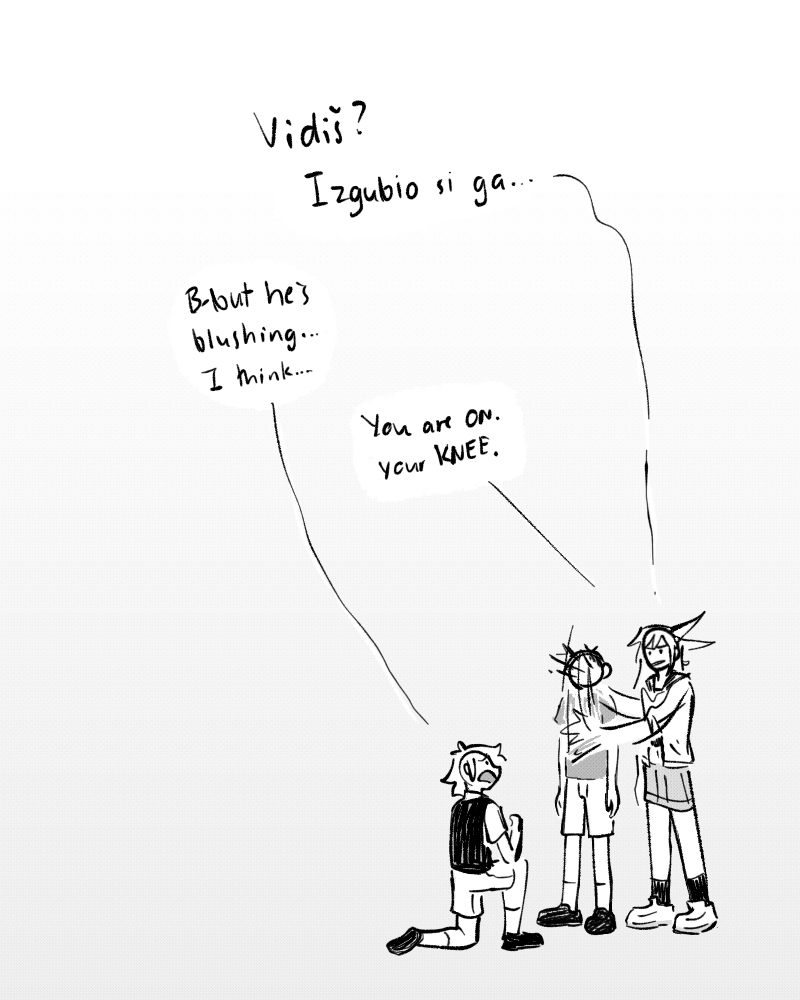 Vidiš?
Izgubio si ga...
B-but he's
blushing...
I think...
You are ON.
your KNEE.